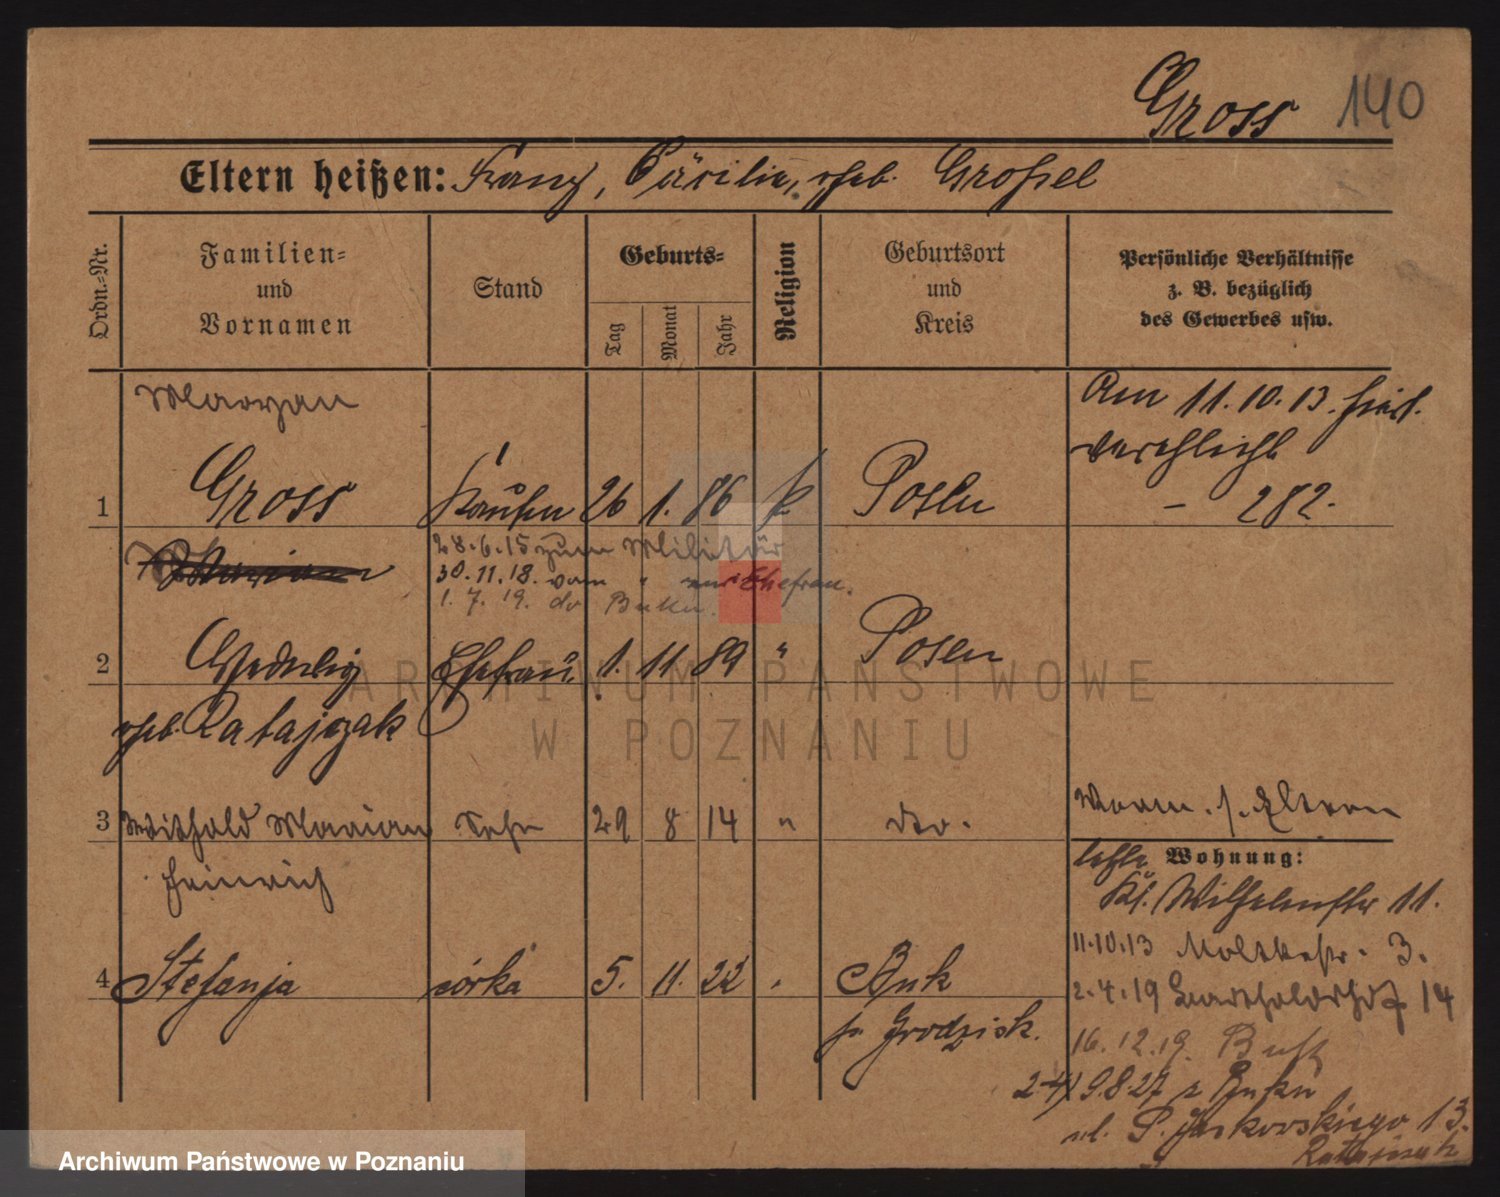 Gross 140
Eltern heißen: Franz, Cäcilie, geb. Grossel
Ordn.-Nr.
Familien-
und
Vornamen
Stand
Geburts-
Tag
Monat
Jahr
Religion
Geburtsort
und
Kreis
Persönliche Verhältnisse
z. B. bezüglich
des Gewerbes usw.
Maryan
Am 11.10.13. hier
verehlicht
- 282.
1 Gross Kaufm 26 1. 86 k Posen
28.6.15 zum Militär
30.11.18. vom " Ehefrau.
1. 7. 19. do Buku.
2 Hedwig Ehefrau 1. 11 89 " Posen
geb. Ratajczak
3 Withold Marian Sohn 29 8 14 " dto.
Heinrich
Worm. s. Eltern
Wohnung:
Kl. Wilhelmstr 11.
11.10.13 Moltkestr. 3.
4 Stefanja córka 5. 11. 22 " Buk
p. Grodzisk.
2.4.19 14
16.12.19. Buk
2-4) 9.8.27 z Buku
ul. P. Jackowskiego 13.
Ratajczak
ARCHIWUM PAŃSTWOWE
W POZNANIU
Archiwum Państwowe w Poznaniu